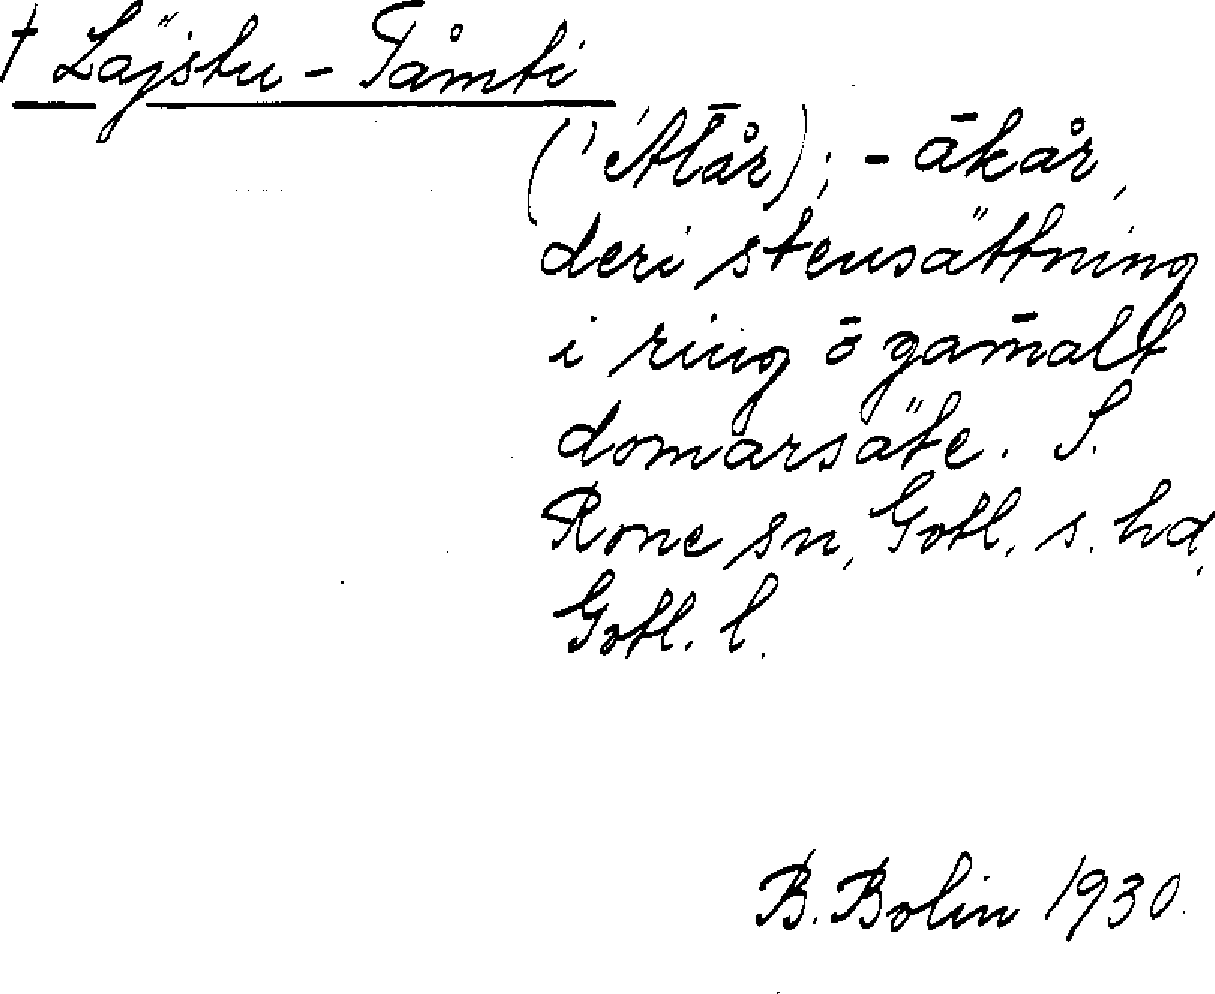 † Läjstu - Tåmti
(' 'Al̄år); - ākår,
deri stensättning
i ring ō gam̄alt
domarsäte. S.
Rone sn, Gotl. s. hd,
Gotl. l.
B. Bolin 1930.